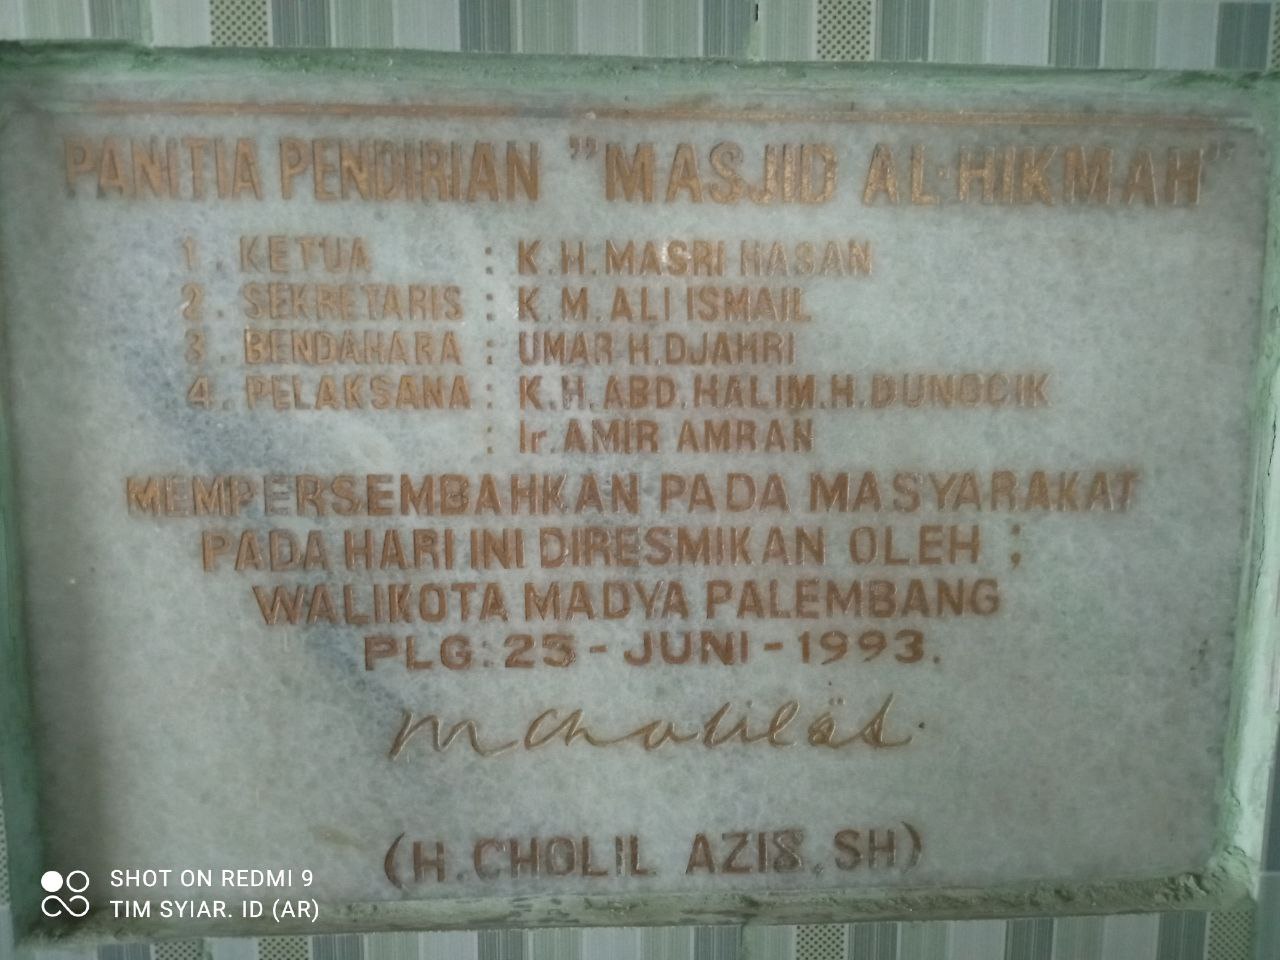 PANITIA PENDIRIAN "MASJID AL-HIKMAH"
1. KETUA : K.H. MASRI HASAN
2. SEKRETARIS : K.M. ALI ISMAIL
3. BENDAHARA : UMAR H.DJAHRI
4. PELAKSANA : K.H.ABD.HALIM.H.DUNGCIK
: Ir.AMIR AMRAN
MEMPERSEMBAHKAN PADA MASYARAKAT
PADA HARI INI DIRESMIKAN OLEH ;
WALIKOTA MADYA PALEMBANG
PLG: 25 - JUNI - 1993.
(H.CHOLIL AZIS, SH)
SHOT ON REDMI 9
TIM SYIAR. ID (AR)